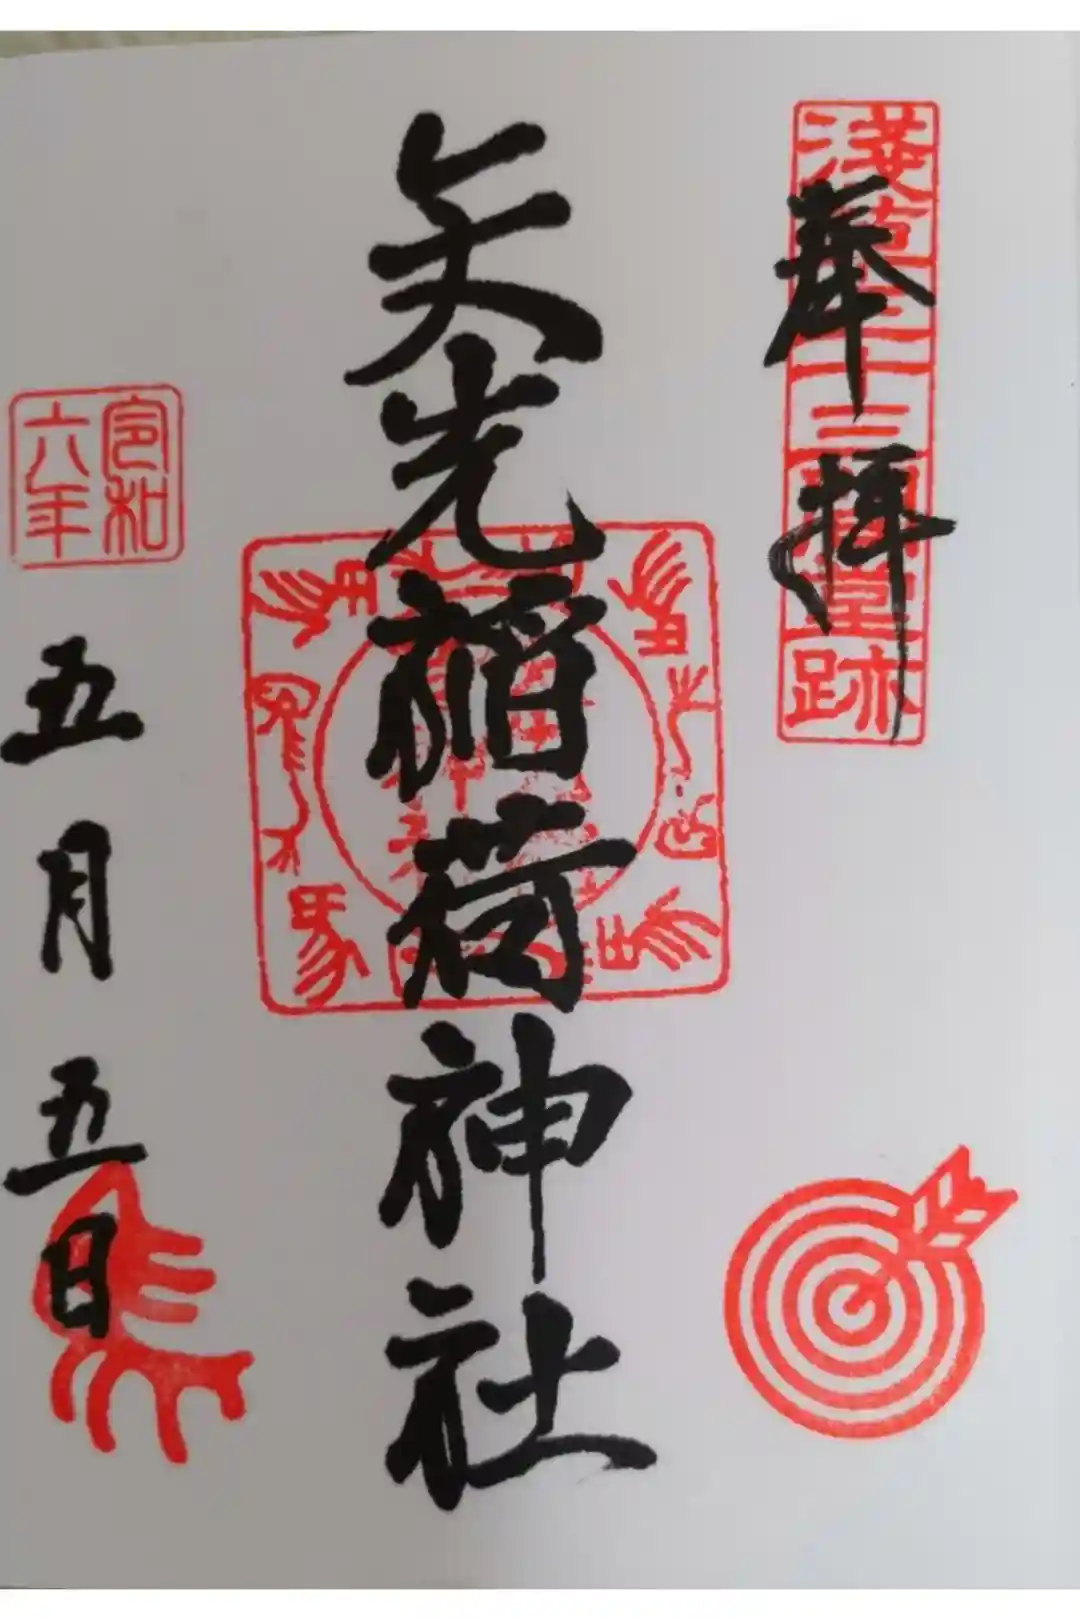 奉拝
淺草三十三間堂跡
矢先稲荷神社
令和
六年
五月五日